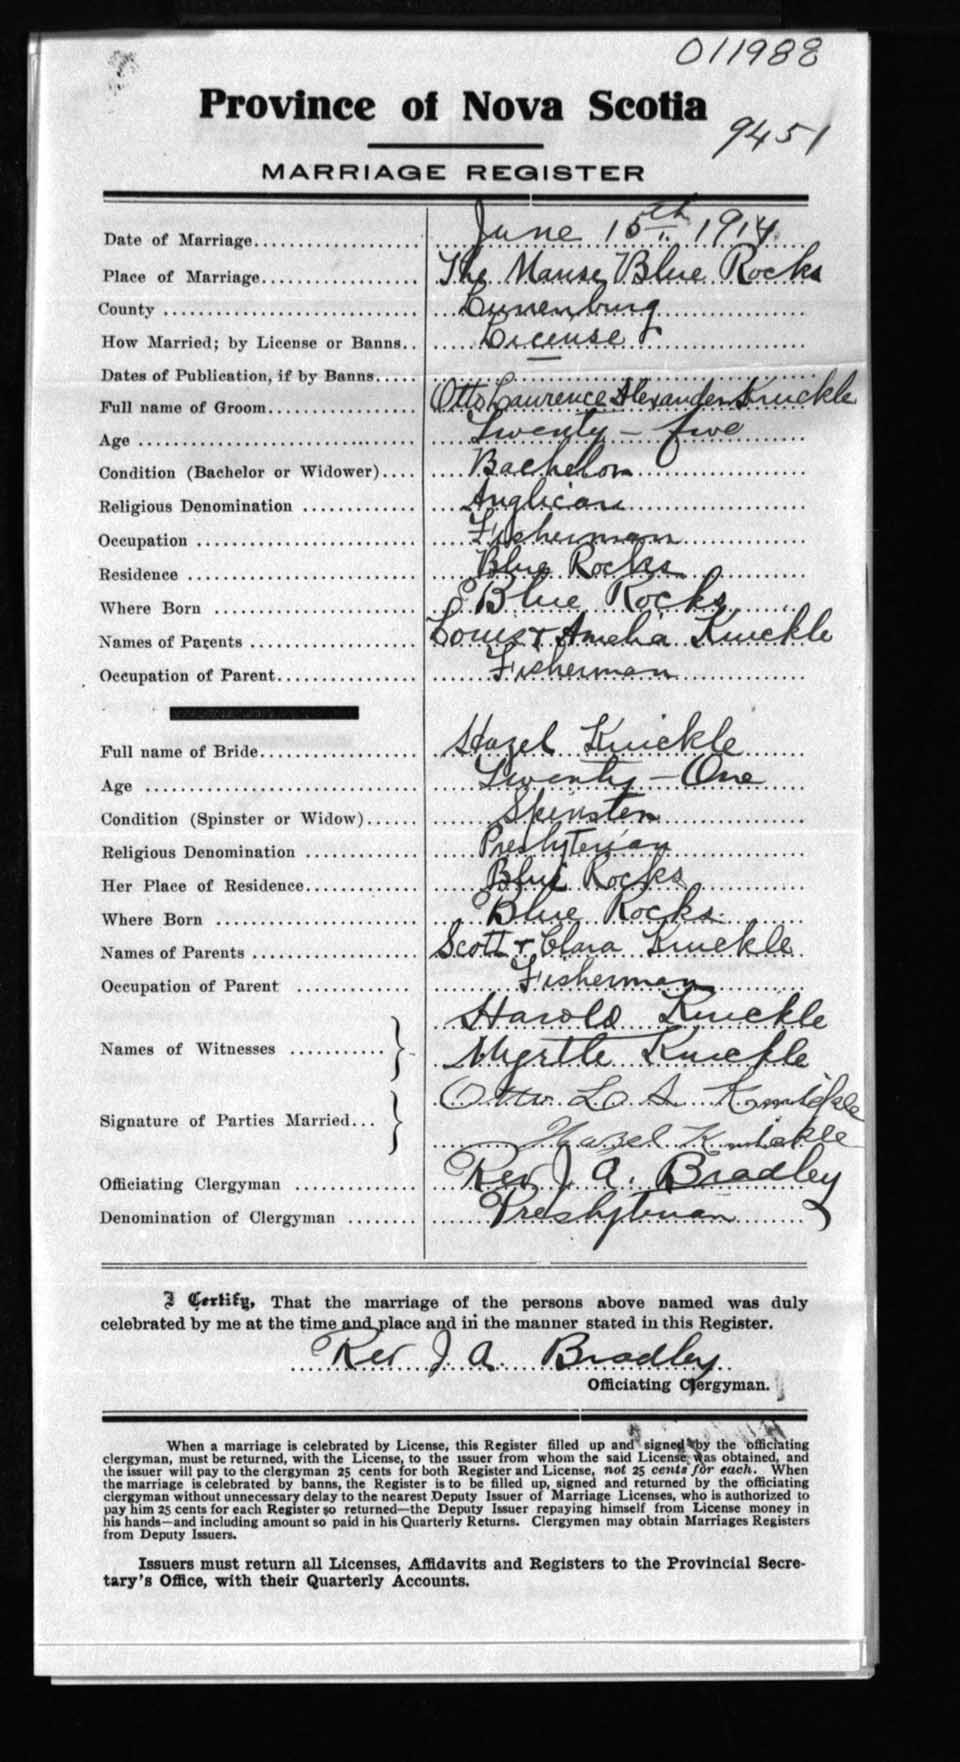 011988
Province of Nova Scotia
9451
MARRIAGE REGISTER
Date of Marriage.................. June 15th 1914
Place of Marriage.................. The Manse, Blue Rocks
County .................. Lunenburg
How Married; by License or Banns.. License
Dates of Publication, if by Banns.....
Full name of Groom.................. Otto Laurence Alexander Knickle
Age .................. Twenty - five
Condition (Bachelor or Widower).... Bachelor
Religious Denomination ............ Anglican
Occupation .................. Fisherman
Residence .................. Blue Rocks
Where Born .................. Blue Rocks
Names of Parents .................. Louis & Amelia Knickle
Occupation of Parent.................. Fisherman
Full name of Bride.................. Hazel Knickle
Age .................. Twenty - One
Condition (Spinster or Widow)...... Spinster
Religious Denomination ............ Presbyterian
Her Place of Residence............ Blue Rocks
Where Born .................. Blue Rocks
Names of Parents .................. Scott & Clara Knickle
Occupation of Parent ............ Fisherman
Harold Knickle
Names of Witnesses ............ Myrtle Knickle
Otto L A Knickle
Signature of Parties Married... Hazel Knickle
Officiating Clergyman ............ Rev J. A. Bradley
Denomination of Clergyman ........ Presbyterian
I Certify, That the marriage of the persons above named was duly
celebrated by me at the time and place and in the manner stated in this Register.
Rev J A Bradley
Officiating Clergyman.
When a marriage is celebrated by License, this Register filled up and signed by the officiating
clergyman, must be returned, with the License, to the issuer from whom the said License was obtained, and
the issuer will pay to the clergyman 25 cents for both Register and License, not 25 cents for each. When
the marriage is celebrated by banns, the Register is to be filled up, signed and returned by the officiating
clergyman without unnecessary delay to the nearest Deputy Issuer of Marriage Licenses, who is authorized to
pay him 25 cents for each Register so returned—the Deputy Issuer repaying himself from License money in
his hands—and including amount so paid in his Quarterly Returns. Clergymen may obtain Marriages Registers
from Deputy Issuers.
Issuers must return all Licenses, Affidavits and Registers to the Provincial Secre-
tary's Office, with their Quarterly Accounts.